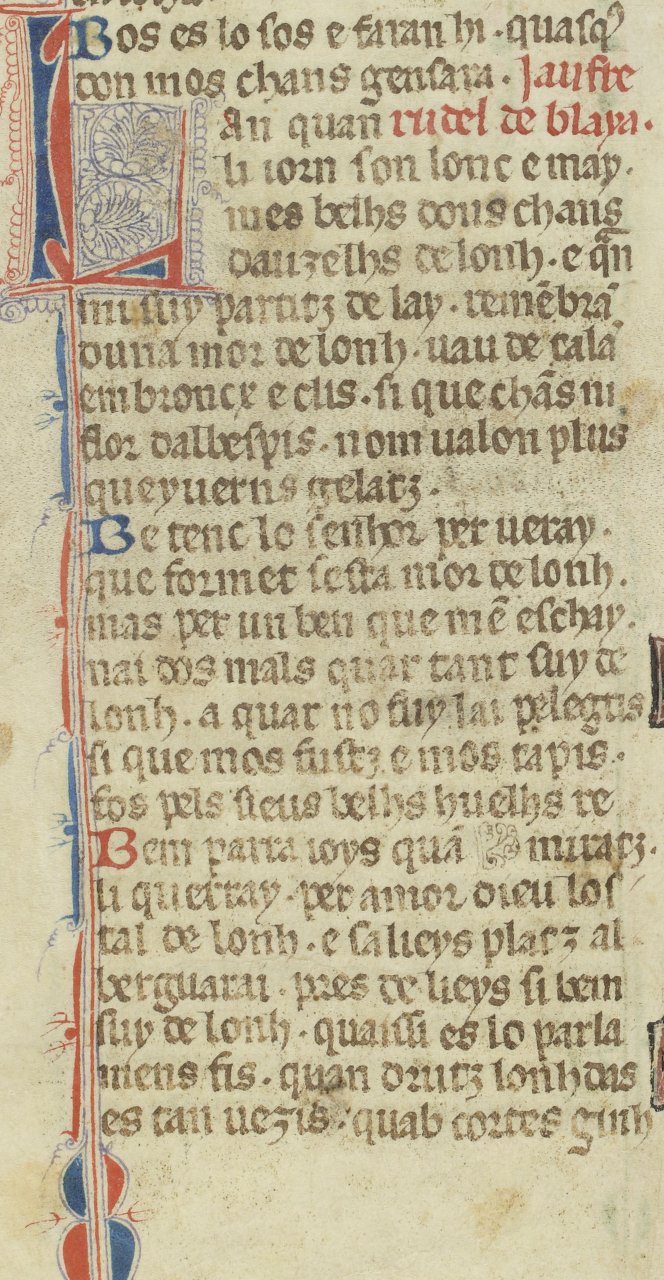 Bos es lo sos e faran hi · quasq̃
don mos chans gensara · Jaufre
an quan rudel de blaya ·
li iorn son lonc e may ·
mes belhs dous chans
dauzelhs de lonh · e q̃n
mi suy partitz de lay · remẽbrã
duna mor de lonh · uau de tala
embroncx e clis · si que chãs ni
flor dalbespis · nom ualon plus
queyuerns gelatz ·
Be tenc lo senhor per ueray ·
que formet sesta mor de lonh ·
mas per un ben que mẽ eschay ·
nai dos mals quar tant suy de
lonh · a quar no fuy lai pelegris
si que mos fustz e mos tapis ·
fos pels sieus belhs huelhs re
Bem parra ioys quã miratz ·
li querray · per amor dieu los
tal de lonh · e sa lieys platz al
berguarai · pres de lieys si bem
suy de lonh · quaissi es lo parla
mens fis · quan drutz lonhdas
es tan uezis · quab cortes ginh